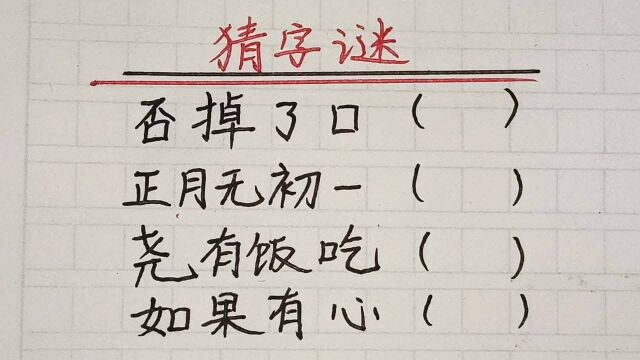 猜字谜
否掉了口（ ）
正月无初一（ ）
尧有饭吃（ ）
如果有心（ ）